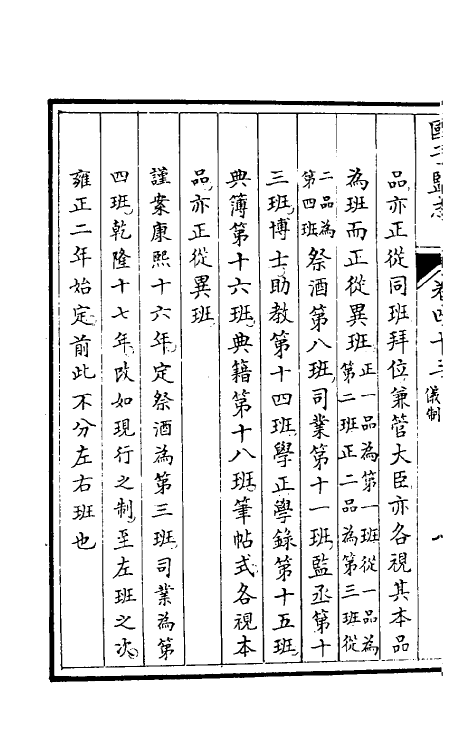 國子監志 卷四十三 儀制
品亦正從同班拜位兼管大臣亦各視其本品
為班而正從異班正一品為第一班從一品為第二班正二品為第三班從
二品為第四班祭酒第八班司業第十一班監丞第十
三班博士助教第十四班學正學錄第十五班
典簿第十六班典籍第十八班筆帖式各視本
品亦正從異班
謹案康熙十六年定祭酒為第三班司業為第
四班乾隆十七年改如現行之制至左班之次
雍正二年始定前此不分左右班也